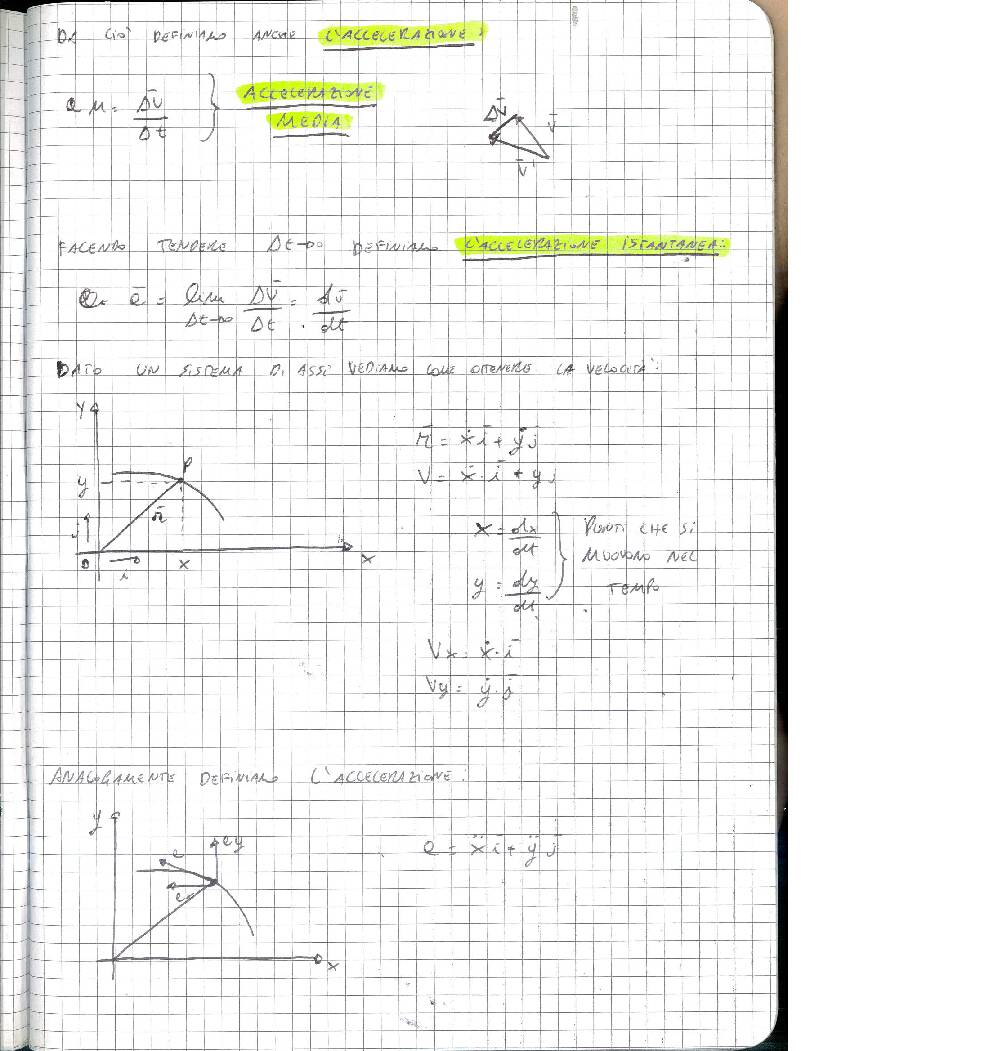 DA CIO' DEFINIAMO ANCHE L'ACCELERAZIONE:
a m = Δv̄/Δt } ACCELERAZIONE
MEDIA
Δv̄ v̄
v̄'
FACENDO TENDERE Δt→0 DEFINIAMO L'ACCELERAZIONE ISTANTANEA:
ā = lim Δt→0 Δv̄/Δt = dv̄/dt
DATO UN SISTEMA DI ASSI VEDIAMO COME OTTENERE LA VELOCITA':
Y
P
y
r̄
j
O i x X
r̄ = ẋ ī + ẏ j̄
V = ẋ · ī + y j
x = dx/dt
y = dy/dt
} PUNTI CHE SI
MUOVONO NEL
TEMPO
Vx = ẋ · ī
Vy = ẏ · j̄
ANALOGAMENTE DEFINIAMO L'ACCELERAZIONE:
y
a ay
x
a = ẍ ī + ÿ j̄